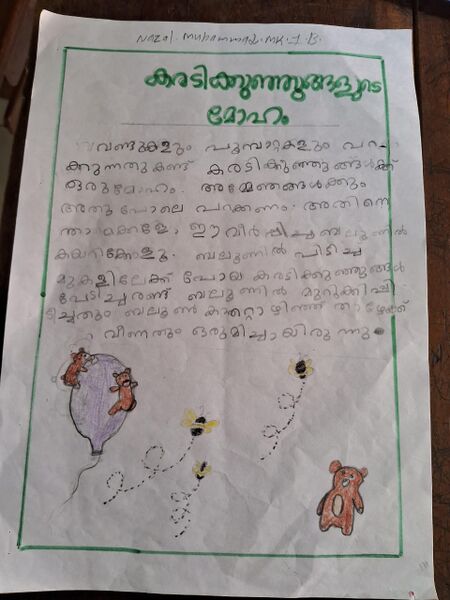 Nazal muhammad. MK. 1 B.
കരടിക്കുഞ്ഞുങ്ങളുടെ
മോഹം
വണ്ടുകളും പൂമ്പാറ്റകളും പറ
ക്കുന്നതുകണ്ട് കരടിക്കുഞ്ഞുങ്ങൾക്ക്
ഒരു മോഹം. അമ്മേഞങ്ങൾക്കും
അതുപോലെ പറക്കണം. അതിനെ
ന്താ മക്കളേ, ഈ വീർപ്പിച്ച ബലൂണിൽ
കയറിക്കോളൂ. ബലൂണിൽ പിടിച്ച്
മുകളിലേക്ക് പോയ കരടിക്കുഞ്ഞുങ്ങൾ
പേടിച്ചരണ്ട് ബലൂണിൽ മുറുക്കിപ്പി
ടിച്ചതും ബലൂൺ കാറ്റൊഴിഞ്ഞ് താഴേക്ക്
വീണതും ഒരുമിച്ചായിരുന്നു.